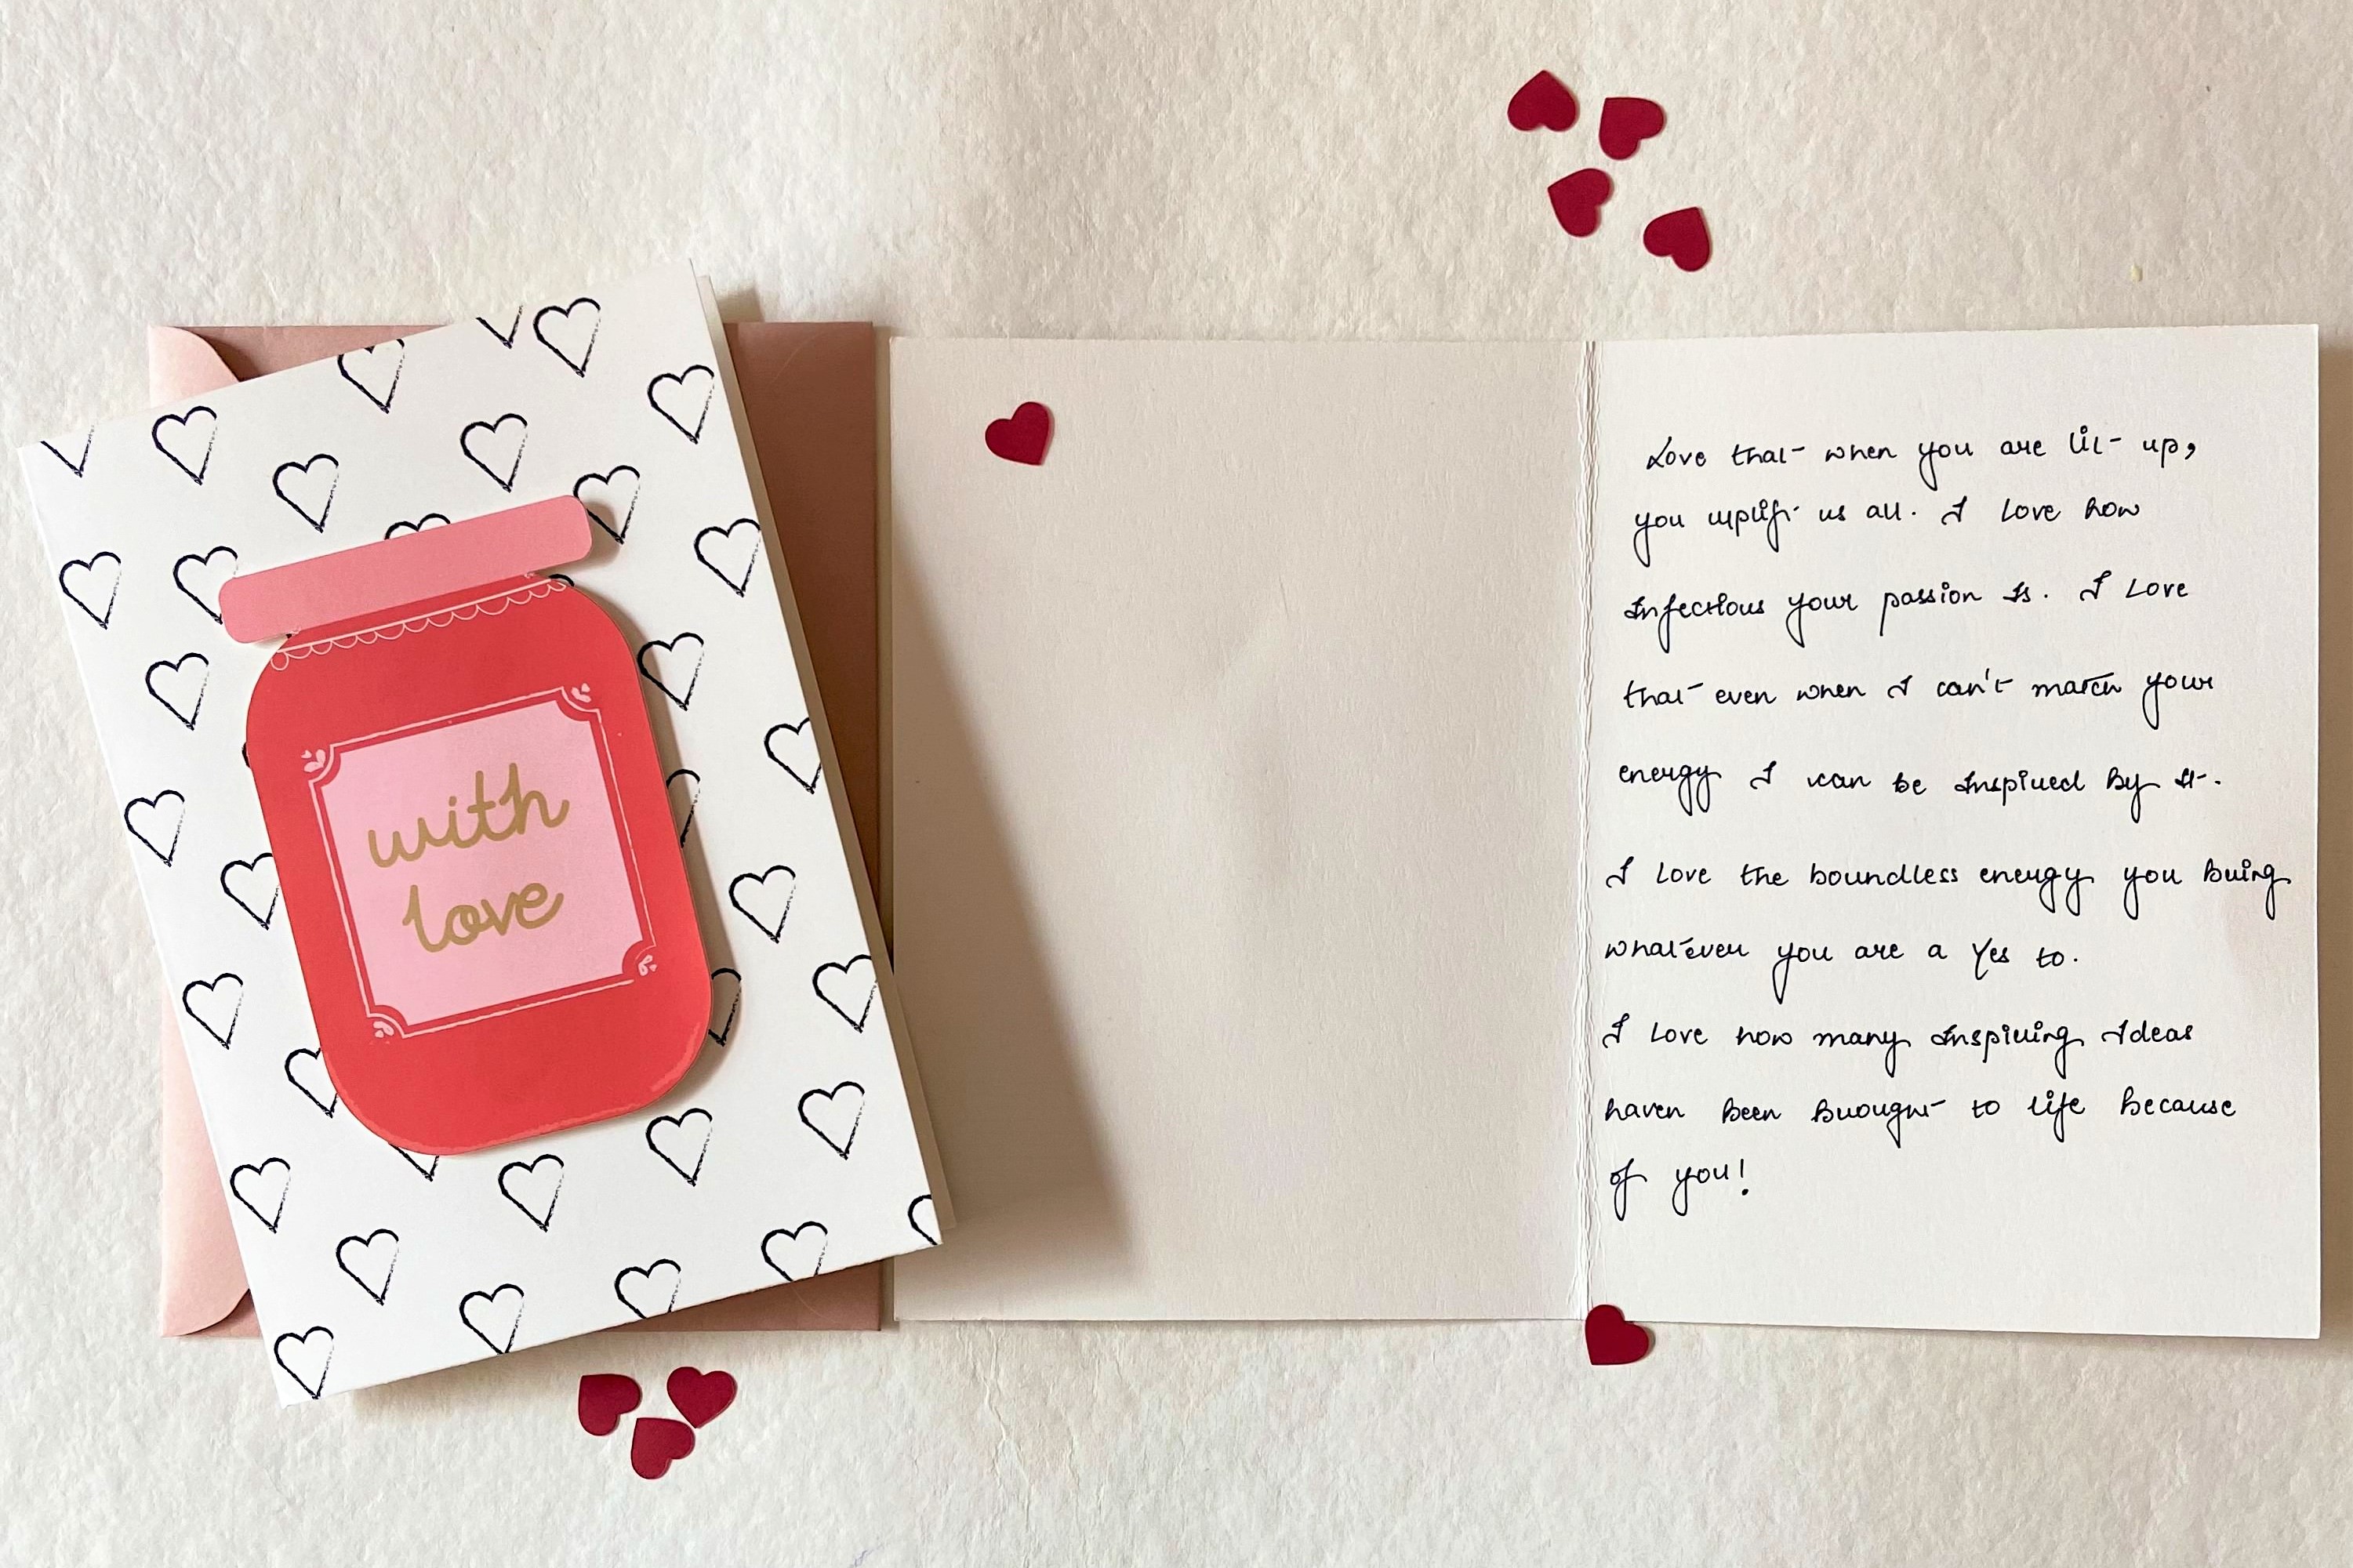 with
love
Love that when you are lit up,
you uplift us all. I love how
Infectious your passion Is. I Love
that even when I can't match your
energy I can be Inspired By It.
I Love the boundless energy you Bring
whatever you are a Yes to.
I Love how many Inspiring Ideas
haven Been Brought to life Because
of you!